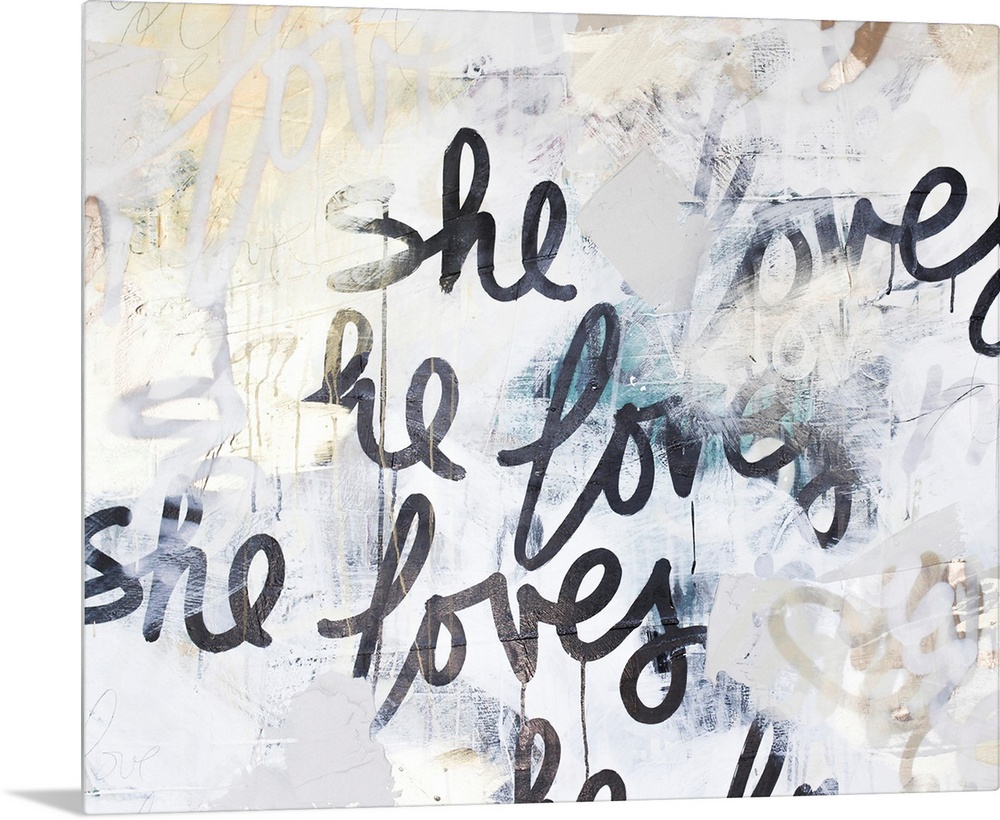 love
she loves
he loves
she loves
he
love